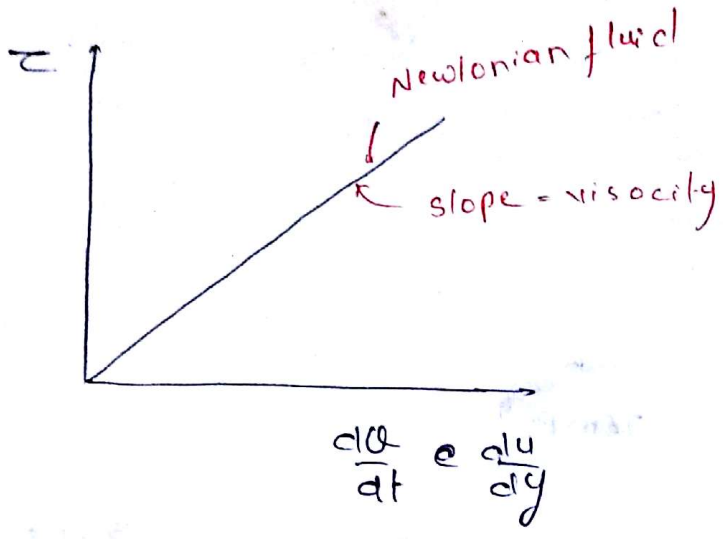 τ
Newtonian fluid
slope = visocity
dθ/dt e du/dy